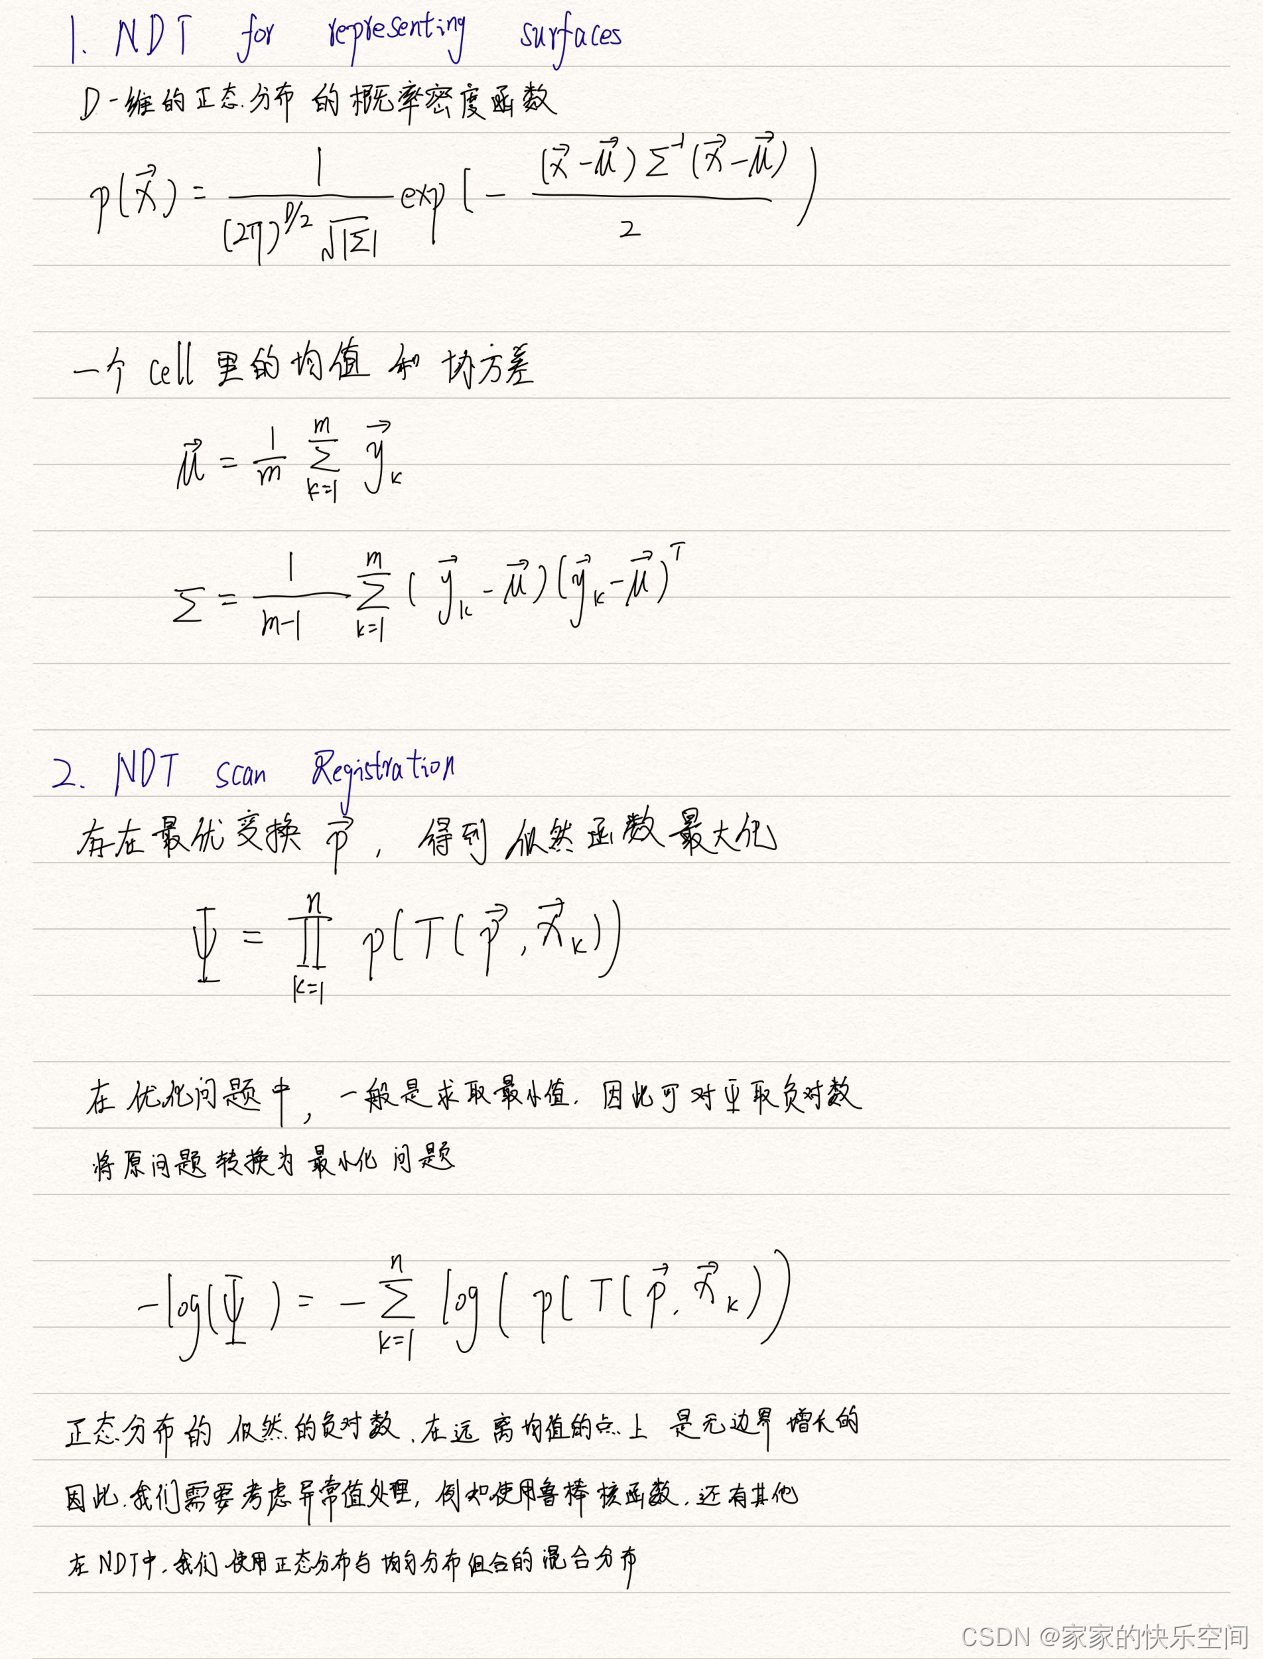 1. NDT for representing surfaces
D-维的正态分布的概率密度函数
p(x⃗) = 1/((2π)^{D/2} √|Σ|) exp(- (x⃗-μ⃗)Σ⁻¹(x⃗-μ⃗)/2)
一个 cell 里的均值 和 协方差
μ⃗ = 1/m Σ_{k=1}^{m} y⃗_k
Σ = 1/(m-1) Σ_{k=1}^{m} (y⃗_k-μ⃗)(y⃗_k-μ⃗)^T
2. NDT scan Registration
存在最优变换 p⃗, 得到 似然函数最大化
Ψ = ∏_{k=1}^{n} p(T(p⃗,x⃗_k))
在优化问题中, 一般是求取最小值. 因此可对Ψ取负对数
将原问题转换为最小化问题
-log(Ψ) = -Σ_{k=1}^{n} log(p(T(p⃗,x⃗_k))
正态分布的似然的负对数.在远离均值的点上是无边界增长的
因此.我们需要考虑异常值处理, 例如使用鲁棒核函数.还有其他
在NDT中.我们使用正态分布与均匀分布组合的混合分布
CSDN @家家的快乐空间